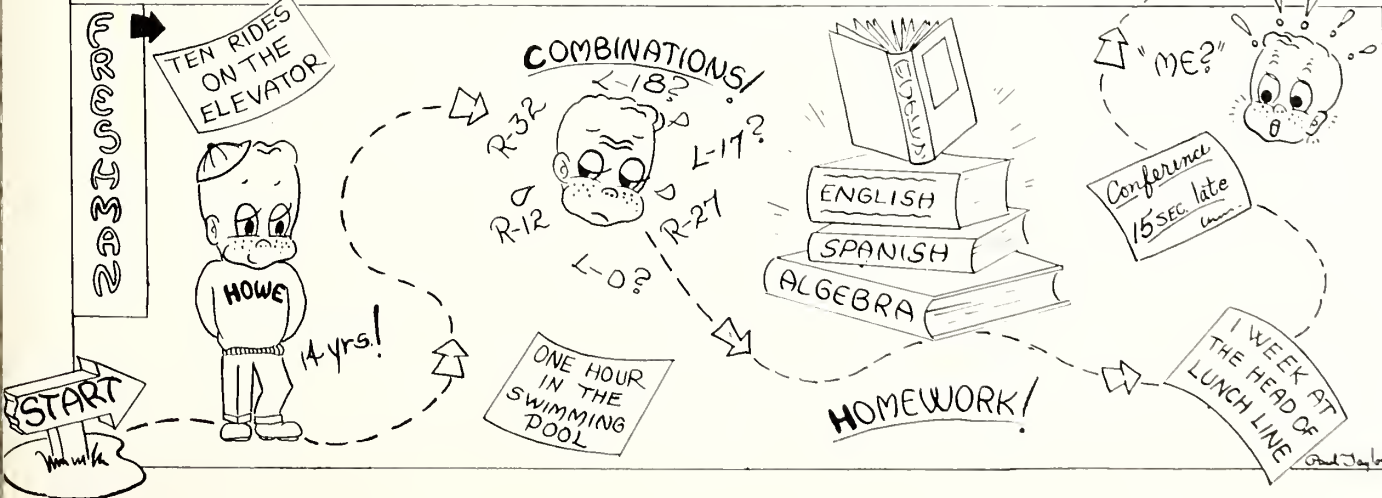 FRESHMAN
TEN RIDES
ON THE
ELEVATOR
HOWE
14 yrs!
START
COMBINATIONS!
L-18?
R-32
L-17?
R-12
R-27
L-0?
ONE HOUR
IN THE
SWIMMING
POOL
ENGLISH
SPANISH
ALGEBRA
HOMEWORK!
"ME?"
Conference
15 SEC. late
1 WEEK AT
THE HEAD OF
LUNCH LINE
Paul Taylor